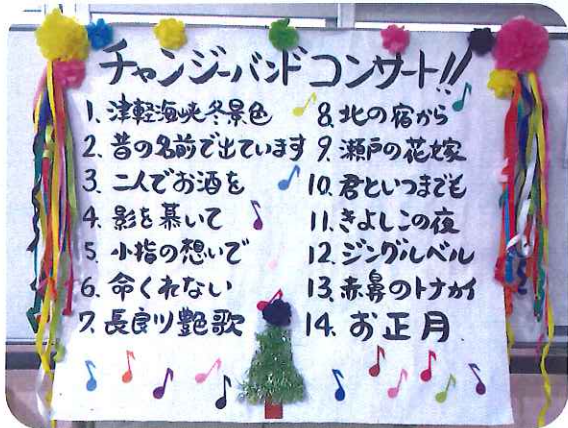 チャンジーバンドコンサート!!
1. 津軽海峡冬景色
2. 昔の名前で出ています
3. 二人でお酒を
4. 影を慕いて
5. 小指の想いで
6. 命くれない
7. 長良川艶歌
8. 北の宿から
9. 瀬戸の花嫁
10. 君といつまでも
11. きよしこの夜
12. ジングルベル
13. 赤鼻のトナカイ
14. お正月